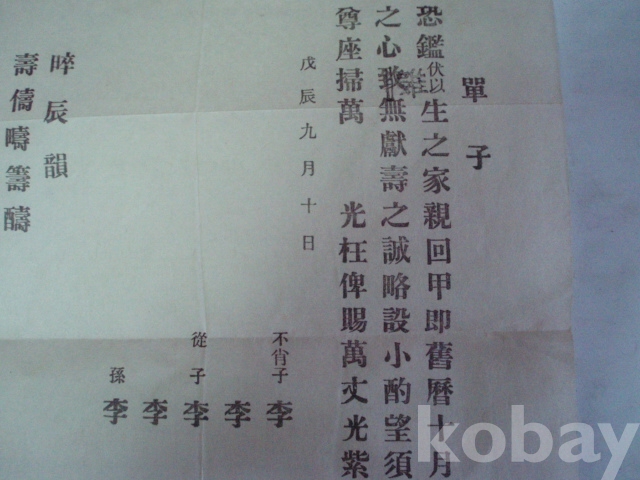 單子
恐鑑伏以生之家親回甲即舊曆十月
之心無獻壽之誠略設小酌望須
尊座掃萬 光枉俾賜萬丈光紫
戊辰九月十日
不肖子 李
李
從子 李
李
孫 李
晬辰韻
壽儔疇籌醻
kobay